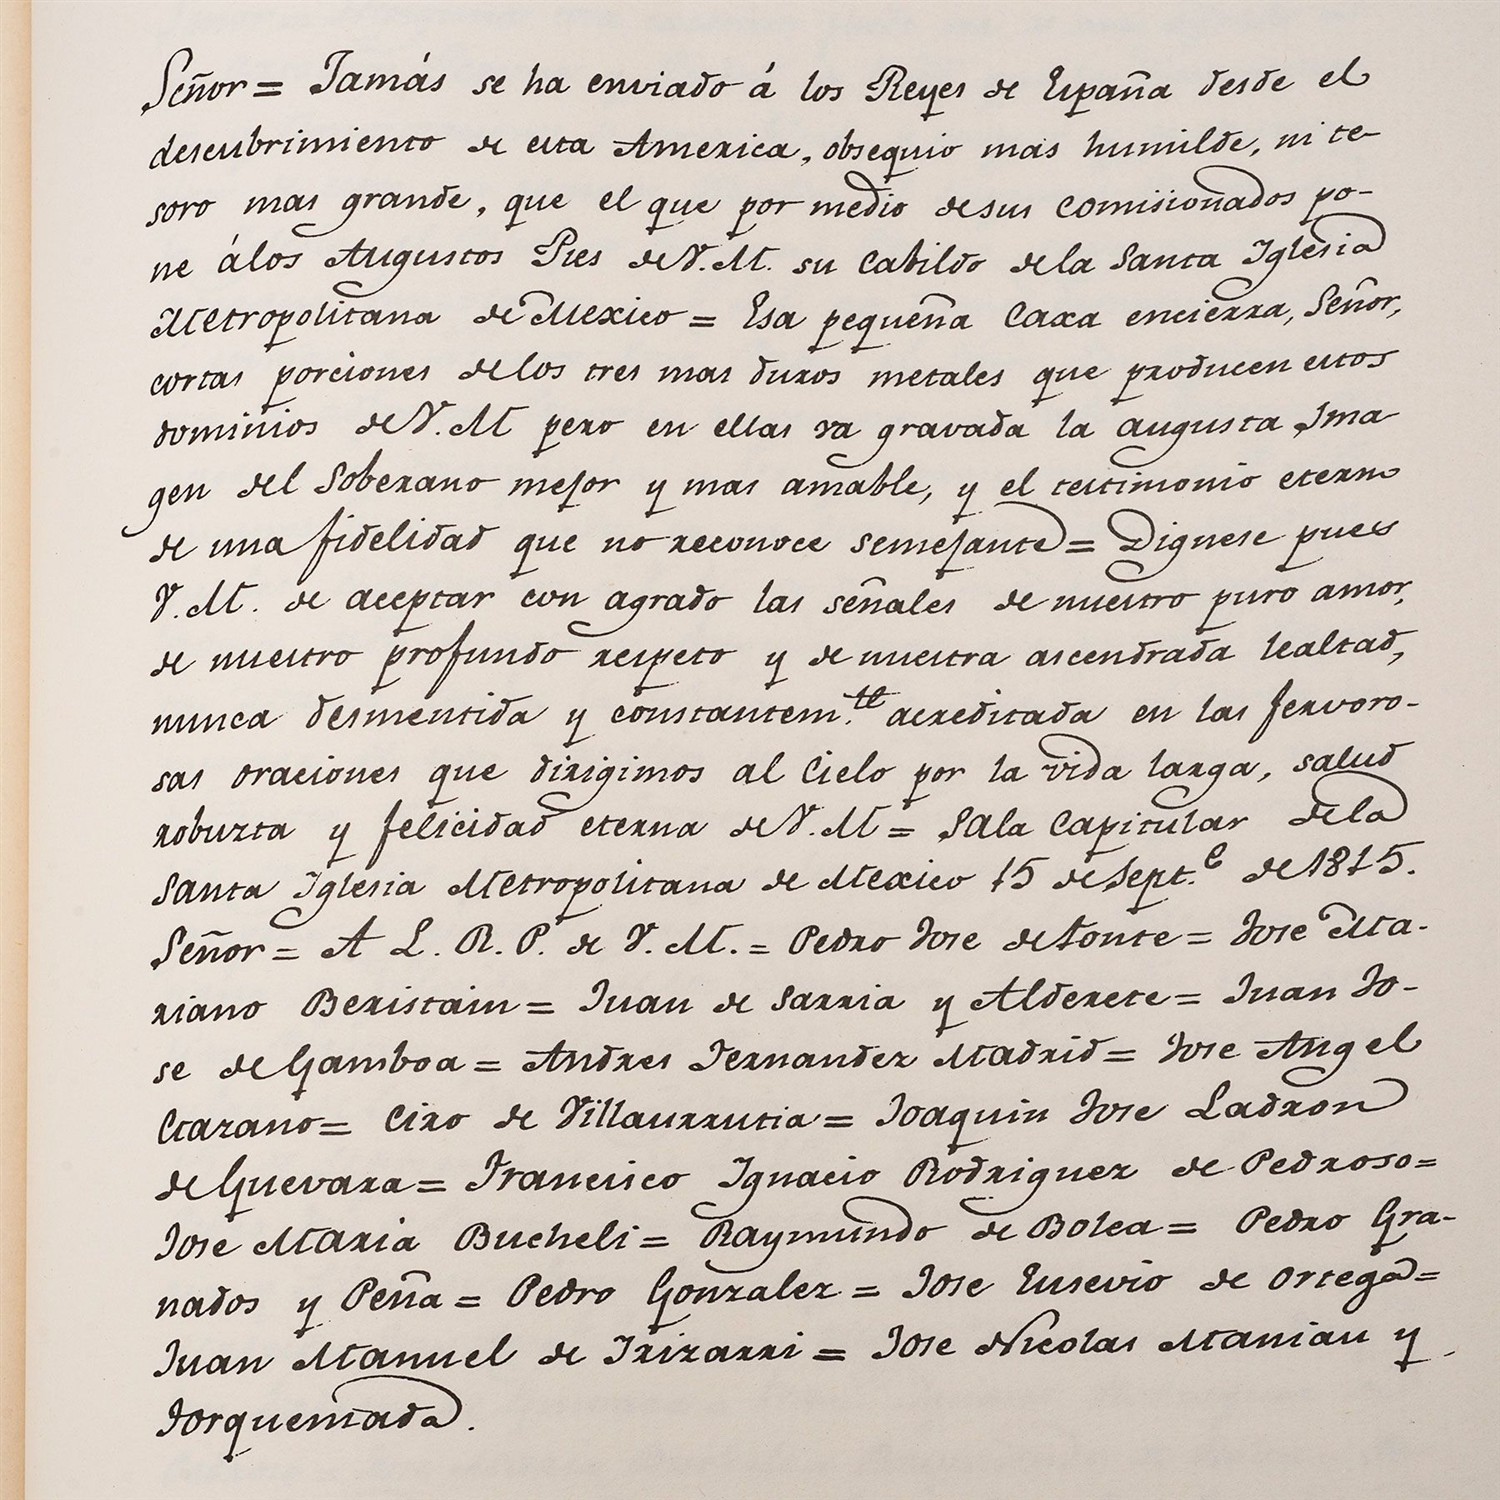 Señor = Jamás se ha enviado á los Reyes de España desde el
descubrimiento de esta America, obsequio mas humilde, ni te-
soro mas grande, que el que por medio de sus comisionados po-
ne á los Augustos Pies de V. M. su Cabildo de la Santa Iglesia
Metropolitana de Mexico = Esa pequeña Caxa encierra, Señor,
cortas porciones de los tres mas duros metales que producen estos
dominios de V. M pero en ellas va gravada la augusta Ima
gen del Soberano mejor y mas amable, y el testimonio eterno
de una fidelidad que no reconoce semejante = Dignese pues
V. M. de aceptar con agrado las señales de nuestro puro amor,
de nuestro profundo respeto y de nuestra ascendrada lealtad,
nunca desmentida y constantem.te acreditada en las fervoro-
sas oraciones que dirigimos al Cielo por la vida larga, salud
robuzta y felicidad eterna de V. M = Sala Capitular de la
Santa Iglesia Metropolitana de Mexico 15 de Sept.e de 1815.
Señor = A L. R. P. de V. M. = Pedro Jose de Fonte = Jose Ma-
riano Beristain = Juan de Sarria y Alderete = Juan Jo-
se de Gamboa = Andres Fernandez Madrid = Jose Angel
Gazano = Ciro de Villaurrutia = Joaquin Jose Ladron
de Guevara = Francisco Ignacio Rodriguez de Pedroso =
Jose Maria Bucheli = Raymundo de Bolea = Pedro Gra-
nados y Peña = Pedro Gonzalez = Jose Eusevio de Ortega =
Juan Manuel de Irizarri = Jose Nicolas Maniau y
Torquemada.